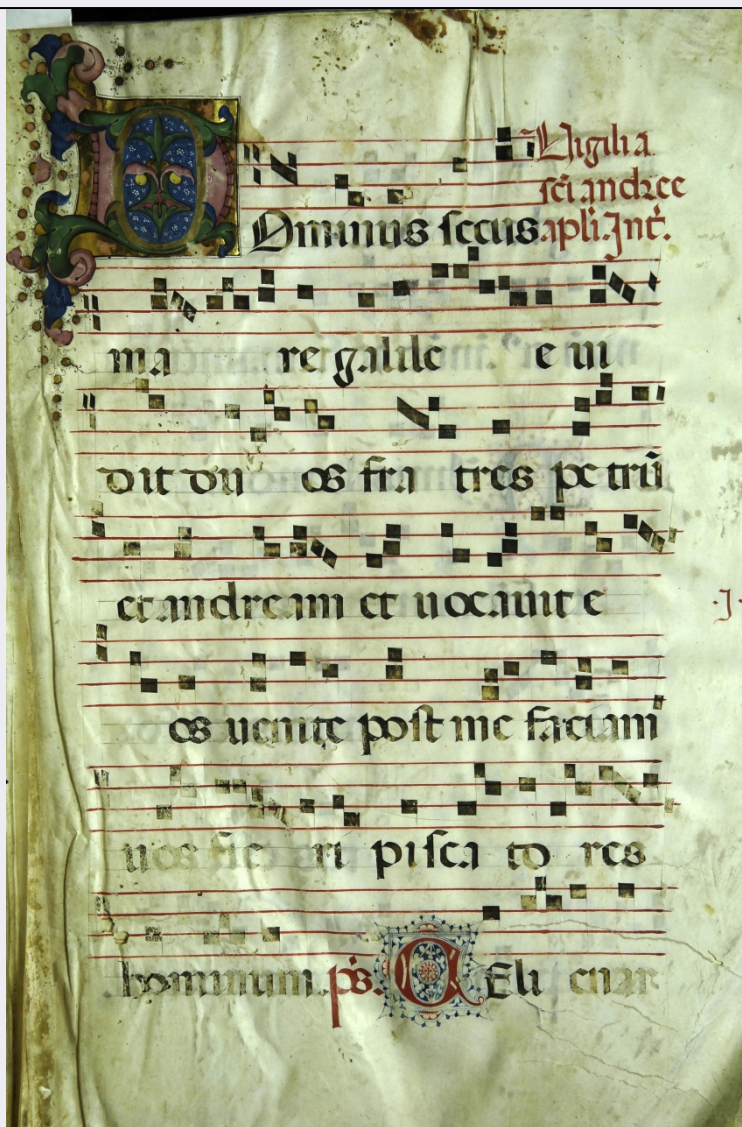 Vigilia
sci andree
Dominus secus apli. Int.
ma re galile e ui
dit du os fra tres petrū
et andream et uocauit e
os uenite post me faciam
.I.
uos fie ri pisca to res
hominum. ps. Celi enar